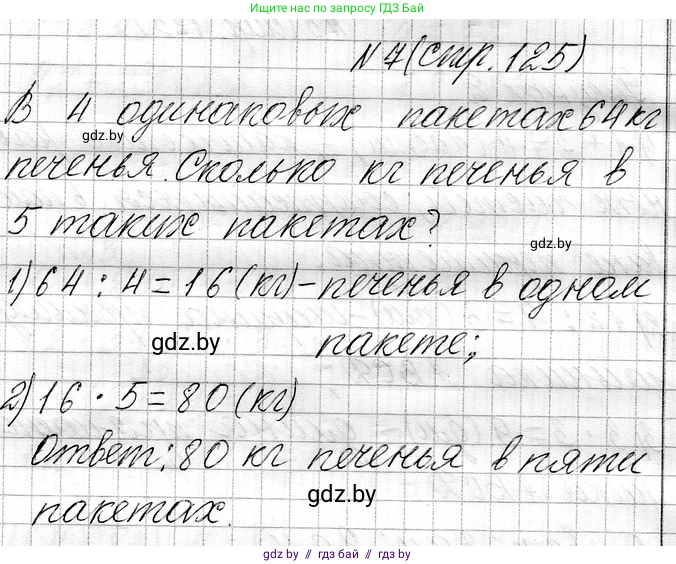 Ищите нас по запросу ГДЗ Бай
N 7 (стр. 125)
В 4 одинаковых пакетах 64 кг
gdz.by
печенья. Сколько кг печенья в
5 таких пакетах?
gdz.by
1) 64 : 4 = 16 (кг) – печенья в одном
gdz.by
пакете;
2) 16 · 5 = 80 (кг)
Ответ: 80 кг печенья в пяти
gdz.by
пакетах.
gdz.by // гдз бай // гдз by